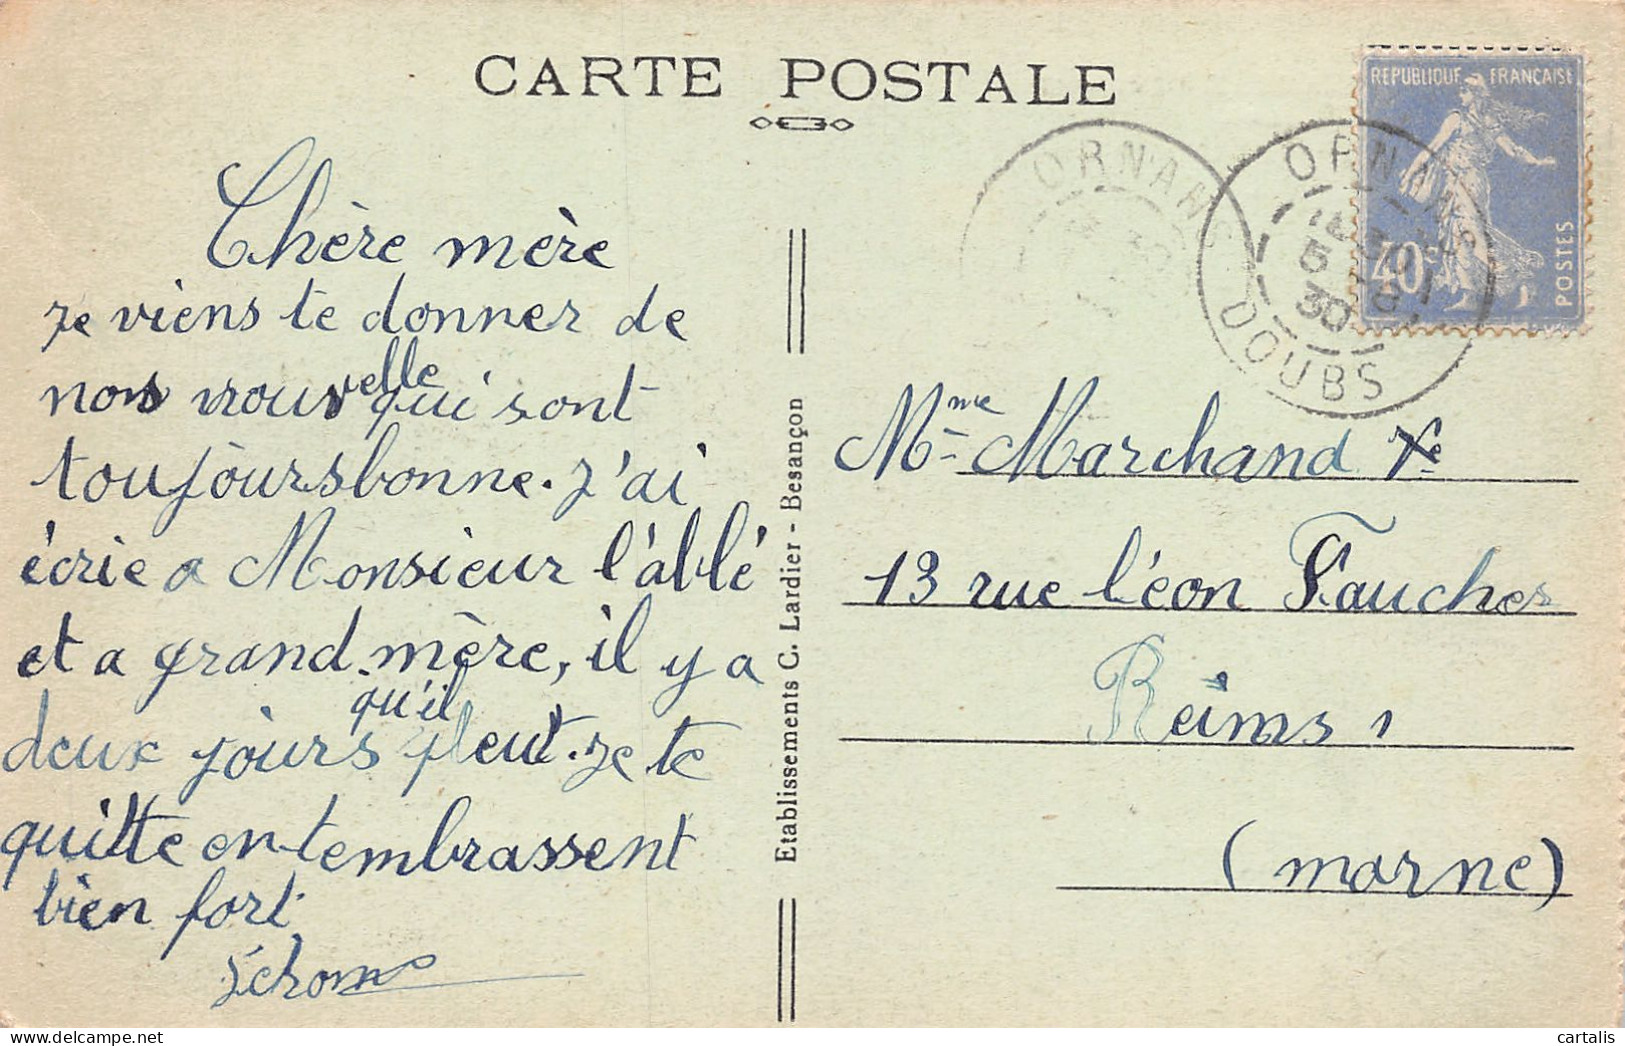 CARTE POSTALE
REPUBLIQUE FRANÇAISE
40c
POSTES
ORNANS
ORNANS
DOUBS
5
30
Chère mère
Je viens te donner de
nos nouvelle qui sont
toujours bonne. J'ai
écrie a Monsieur l'abbé
et a grand-mère, il y a
deux jours qu'il pleut. Je te
quitte en t'embrassent
bien fort
Etablissements C. Lardier - Besançon
Mme Marchand
13 rue Léon Faucher
Reims
(marne)
cartalis